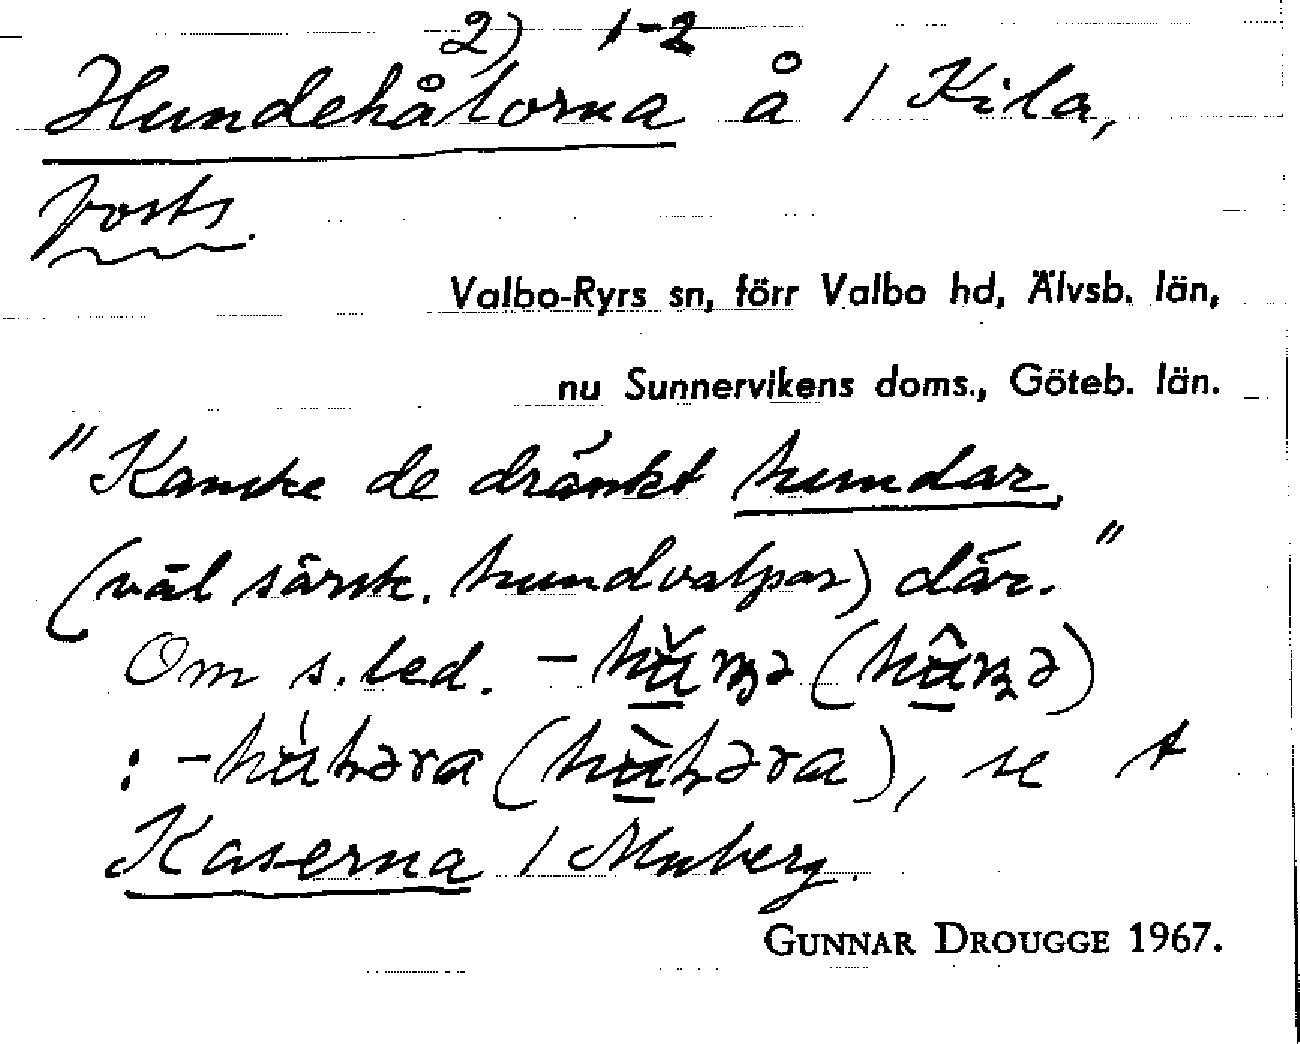 2) 1-2
Hundehålorna å / Kila,
forts.
Valbo-Ryrs sn, förr Valbo hd, Älvsb. län,
nu Sunnervikens doms., Göteb. län.
"Kanske de dränkt hundar
(väl särsk. hundvalpar) där."
Om s. led.
se t
Kaserna / Munberg.
GUNNAR DROUGGE 1967.